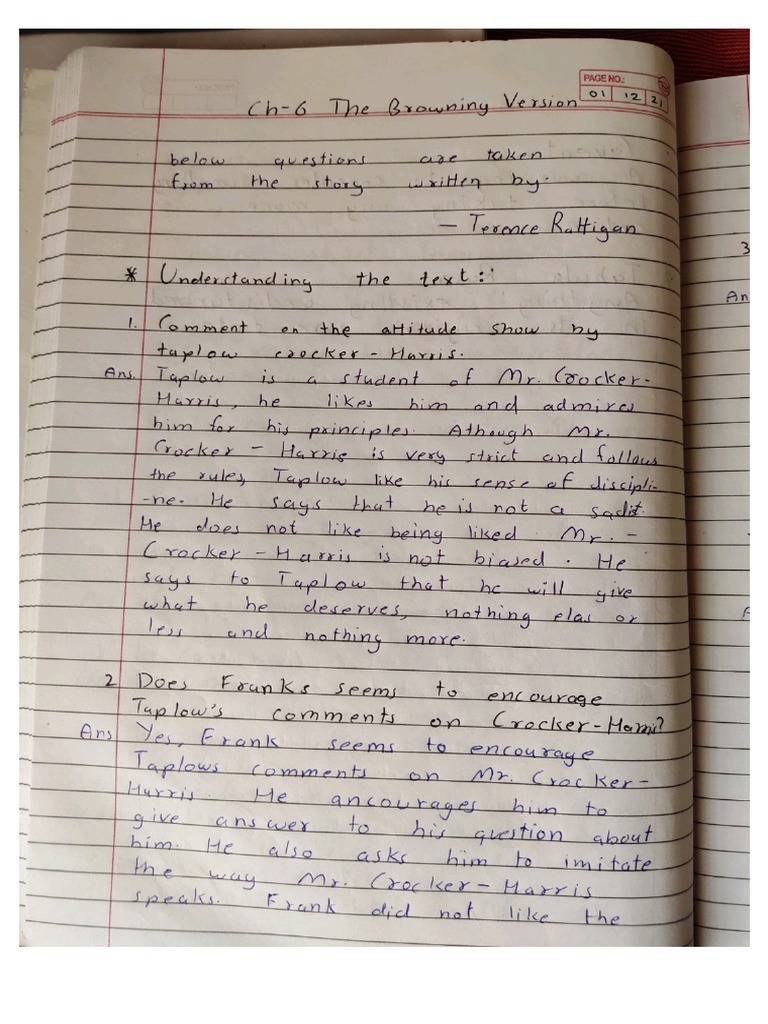 PAGE NO.:
01 12 21
Ch-6 The Browning Version
below questions are taken
from the story written by:
- Terence Rattigan
* Understanding the text:
1. Comment on the attitude show by
taplow crocker-Harris.
Ans. Taplow is a student of Mr. Croocker-
Harris, he likes him and admires
him for his principles. Athough Mr.
Crocker-Harris is very strict and follows
the rules, Taplow like his sense of discipli-
-ne. He says that he is not a sadit.
He does not like being liked. Mr. -
Crocker-Harris is not biased. He
says to Taplow that he will give
what he deserves, nothing elas or
less and nothing more.
2 Does Franks seems to encourage
Taplow's comments on Crocker-Harris?
Ans Yes, Frank seems to encourage
Taplows comments on Mr. Crocker-
Harris. He ancourages him to
give answer to his question about
him. He also asks him to imitate
the way Mr. Crocker-Harris
speaks. Frank did not like the
3
An